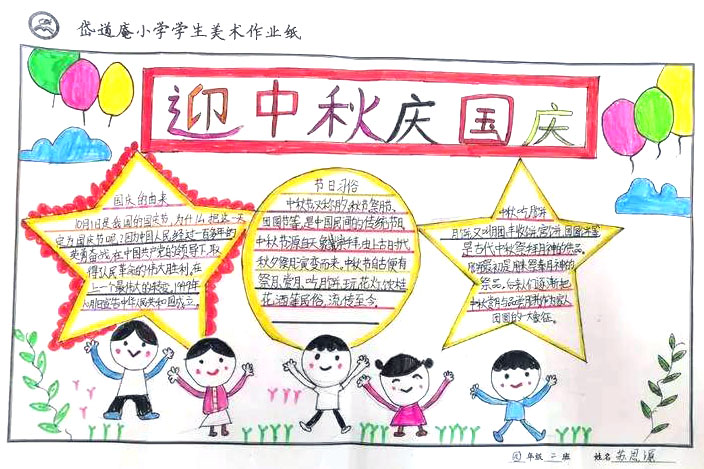 岱道庵小学学生美术作业纸
迎中秋庆国庆
国庆的由来
10月1日是我国的国庆节,为什么把这一天
定为国庆节呢?因为中国人民经过一百多年的
英勇奋战,在中国共产党的领导下,取
得了人民革命的伟大胜利,在
上一个最伟大的转变。1949年
10月1日宣告中华人民共和国成立。
节日习俗
中秋节又称
团圆节等,是中国民间的传统节日,
中秋节源自天象崇拜,由上古时代
秋夕祭月演变而来。中秋节自古便有
祭月、赏月、吃月饼、玩花灯、饮桂
花酒等民俗,流传至今。
中秋吃月饼
月饼又叫月团、丰收饼、宫饼、团圆饼等
是古代中秋祭拜月神的供品。
月饼最初是用来祭奉月神的
祭品。后来人们逐渐把
中秋赏月与品尝月饼作为家人
团圆的一大象征。
四年级 二 班 姓名 苏思源